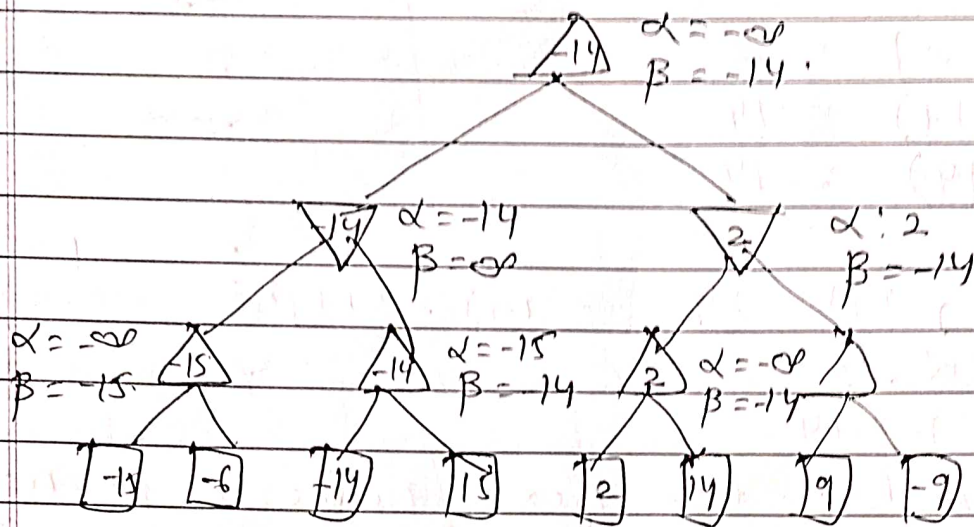 -14 α = -∞
β = -14
-14 α = -14
β = ∞
2 α : 2
β = -14
α = -∞
β = -15
-15
-14 α = -15
β = -14
2 α = -∞
β = -14
-15 -6 -14 15 2 14 9 -9